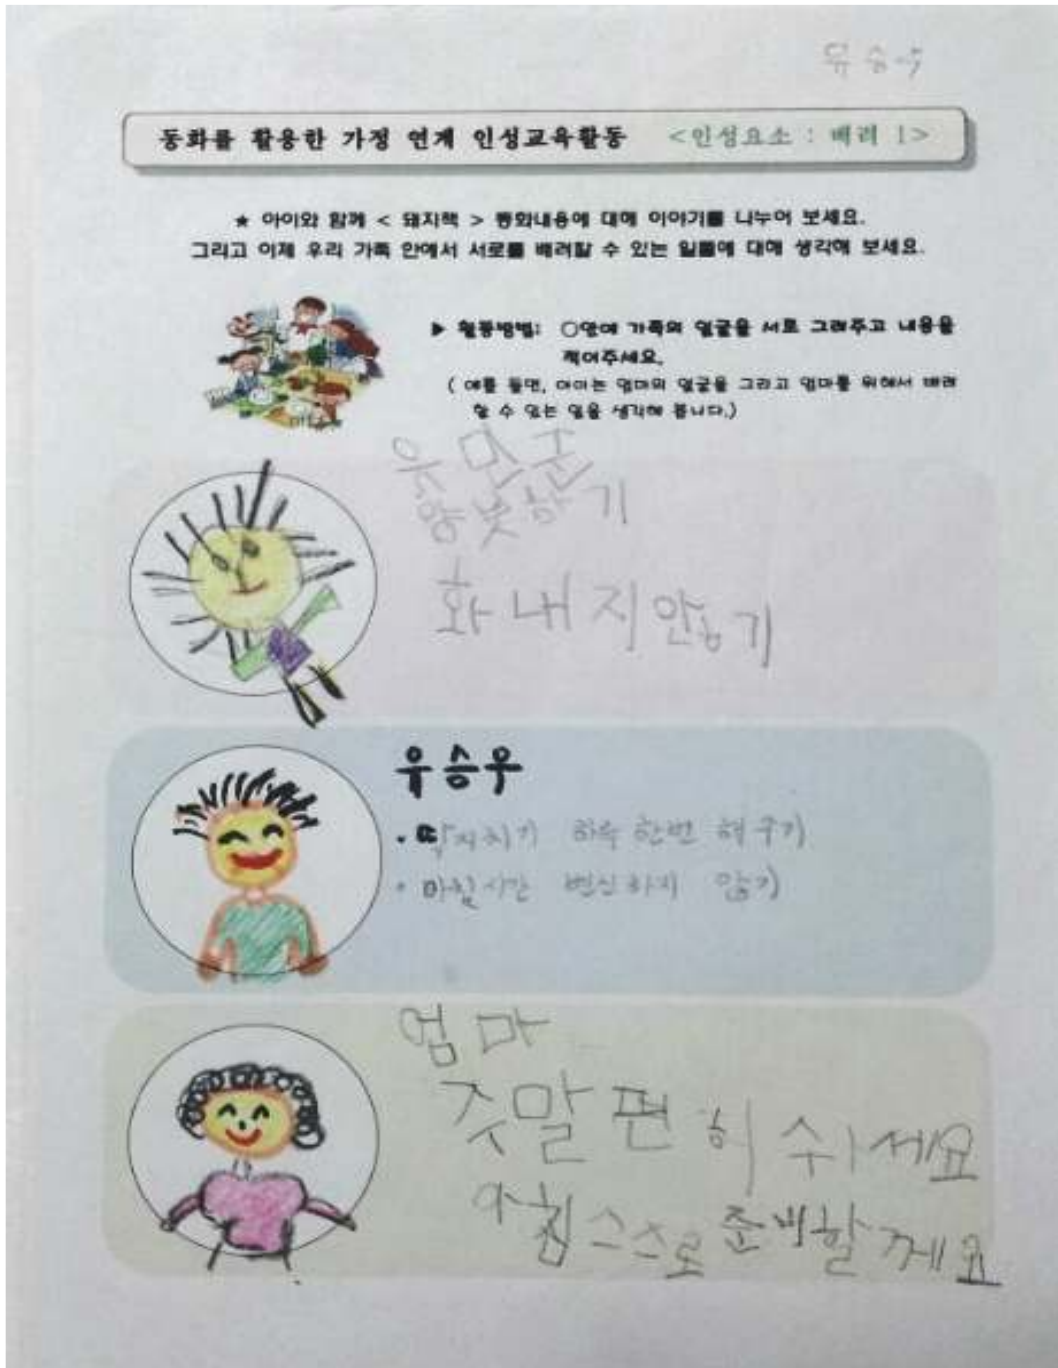 유승우
동화를 활용한 가정 연계 인성교육활동 <인성요소 : 배려 1>
★ 아이와 함께 < 돼지책 > 동화내용에 대해 이야기를 나누어 보세요.
그리고 이제 우리 가족 안에서 서로를 배려할 수 있는 일들에 대해 생각해 보세요.
▶ 활동방법: ○안에 가족의 얼굴을 서로 그려주고 내용을
적어주세요.
( 예를 들면, 아이는 엄마의 얼굴을 그리고 엄마를 위해서 배려
할 수 있는 일을 생각해 봅니다.)
유민준
양봇하기
화내지안능기
유승우
• 딱지치기 하루 한번 해주기
• 아침시간 변신하지 않기
엄마
줏말편히 수ㅣ세요
아침스스로준비할께요